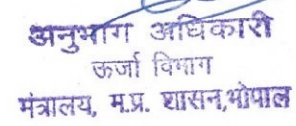 अनुभाग अधिकारी
ऊर्जा विभाग
मंत्रालय, म.प्र. शासन,भोपाल